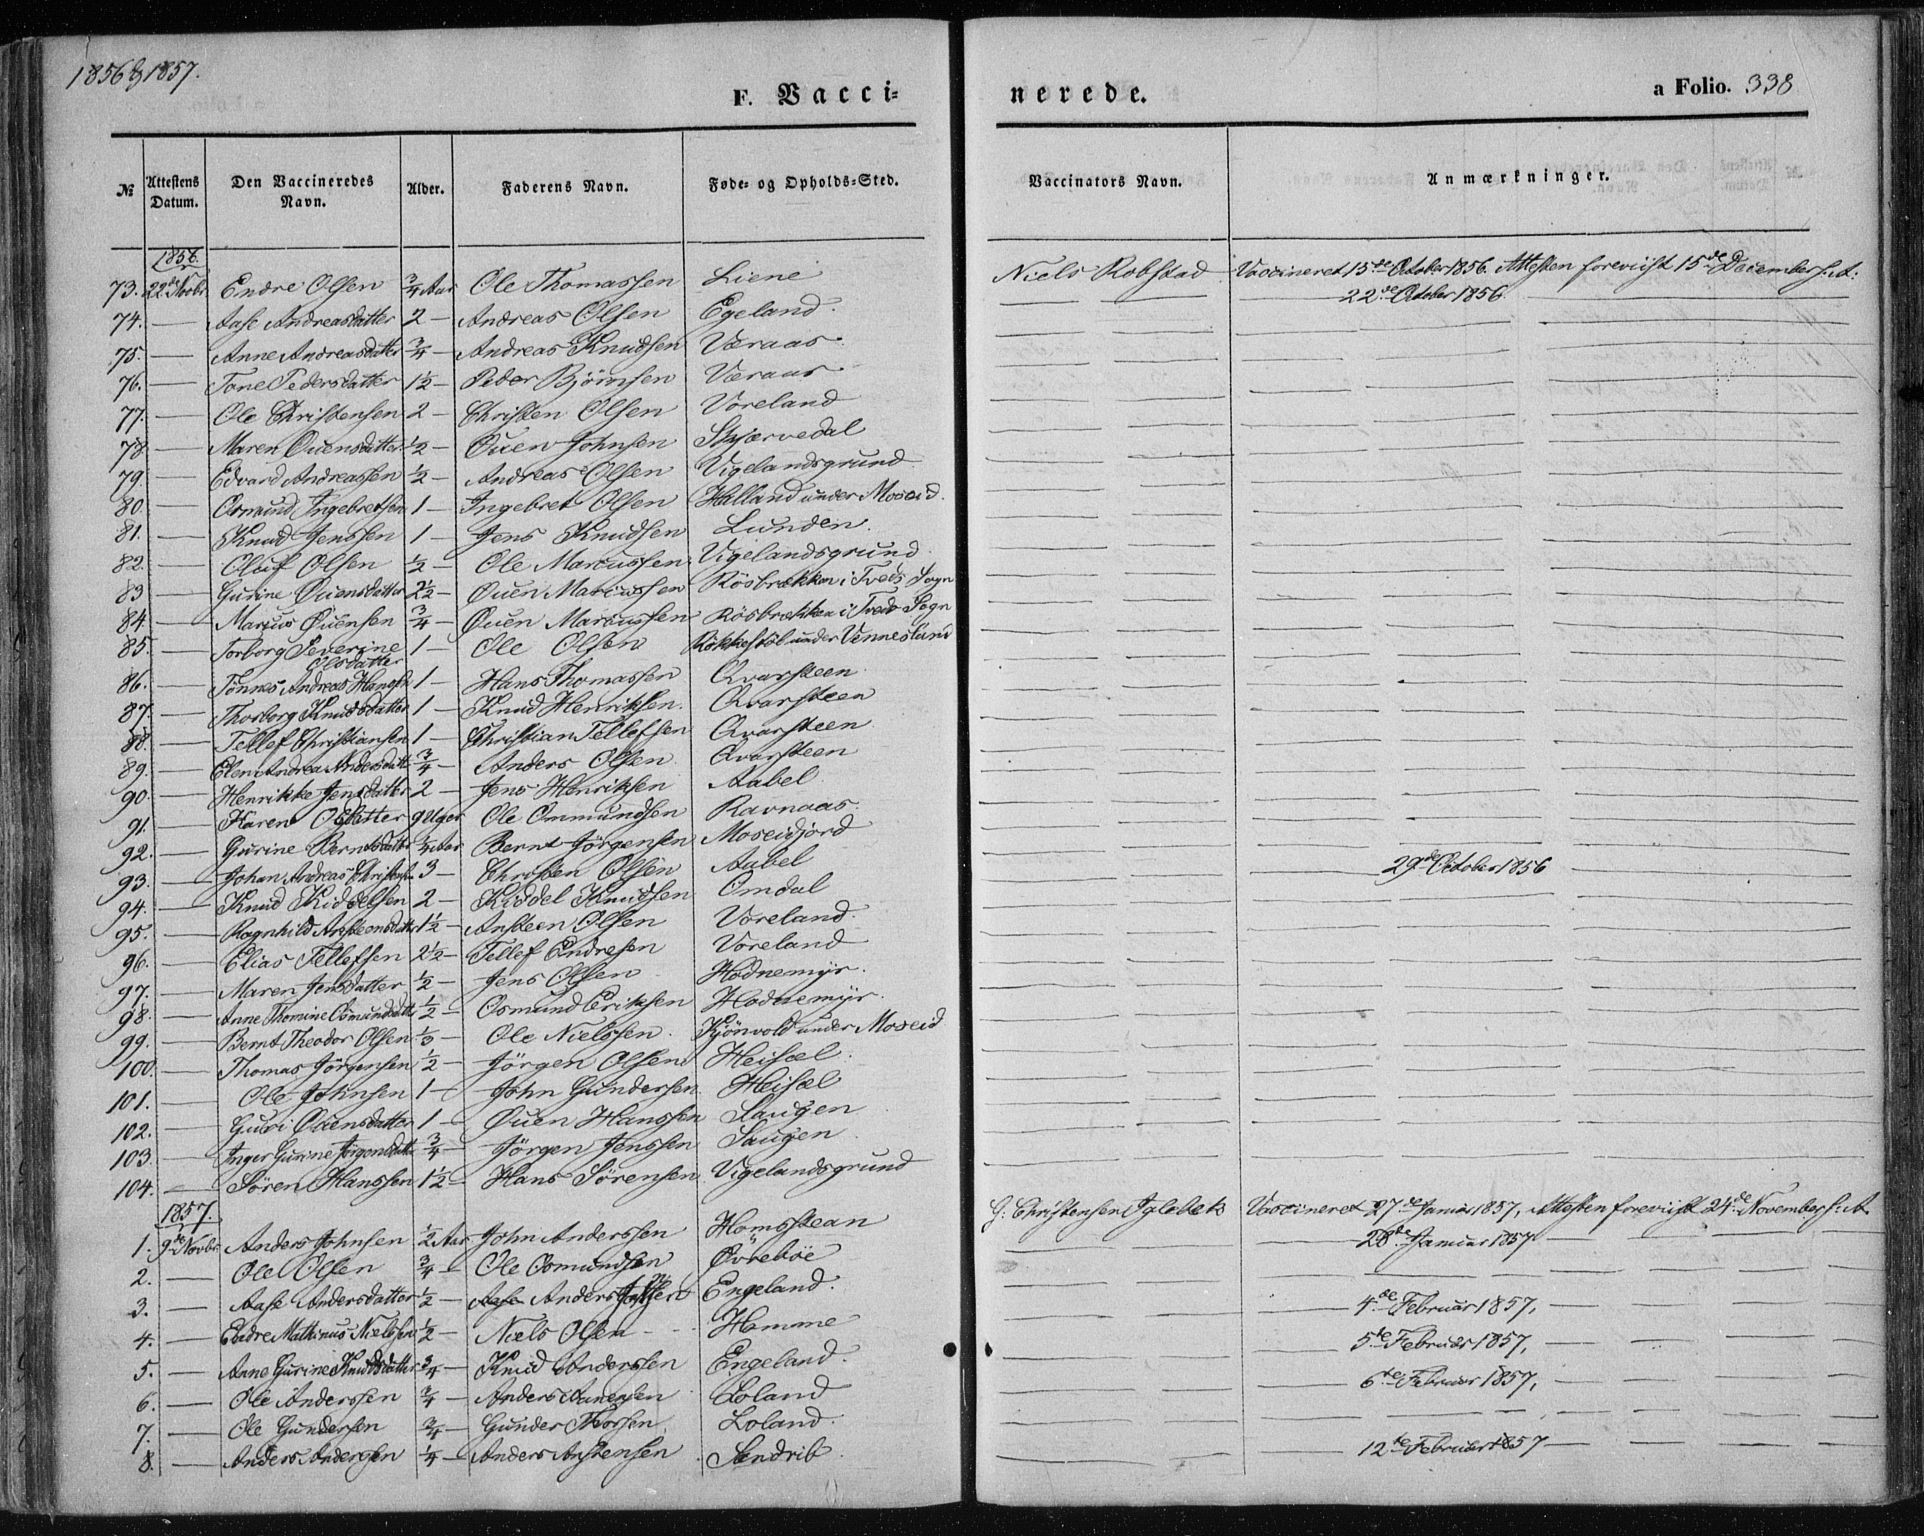 1856 & 1857.
F. Vacci-
nerede.
a Folio. 338
№ Attestens Datum. Den Vaccineredes Navn. Alder. Faderens Navn. Føde- og Opholds-Sted. Vaccinators Navn. Anmærkninger.
1856.
73. 22de Novbr Endre Olsen ¾ Aar Ole Thomassen Liene Niels Robstad Vaccineret 15de October 1856. Attesten foreviist 15de December s. A.
74. — Aase Andreasdatter 2 — Andreas Olsen Egeland. — 22de October 1856.
75. — Anne Andreasdatter ¾ — Andreas Knudsen Væraas
76. — Tone Pedersdatter 1½ — Peder Björnsen Væraas
77. — Ole Christensen 2 — Christen Olsen Voreland
78. — Maren Ouensdatter ½ — Ouen Johnsen Skjærvedal
79. — Edvard Andreassen ½ — Andreas Olsen Vigelandsgrund
80. — Osmund Ingebretsen 1 — Ingebret Olsen Halland under Moseid.
81. — Knud Jenssen 1 — Jens Knudsen Lunden.
82. — Oluf Olsen ½ — Ole Marcussen Vigelandsgrund
83 — Gurine Øuensdatter 2½ — Øuen Marcussen Rösbrækken i Tveds Sogn
84. — Marcus Øuensen ¾ — Øuen Marcussen Rösbrækken i Tveds Sogn
85. — Torborg Severine Olsdatter 1 — Ole Olsen Rökkestöl under Venneslund
86. — Tönnes Andreas Hanss. 1 — Hans Thomassen Qvarsteen
87. — Thorborg Knudsdatter 1 — Knud Henriksen. Qvarsteen
88. — Tellef Christiansen 1 — Christian Tellefsen Qvarsteen
89. — Elen Andrea Andersdatt. ¾ — Anders Olsen Qvarsteen
90. — Henrikke Jensdatter 2 — Jens Henriksen Aabel
91. — Karen Olsdatter 9 Uger Ole Ommundsen Ravnaas
92. — Gurine Berntsdatter ¾ Aar Bernt Jörgensen Moseidjord
93. — Johan Andreas Christens. 3 — Christen Olsen Aabel — 29de October 1856
94. — Knud Kiddelsen 2 — Kiddel Knudsen Omdal
95. — Ragnhild Ansteensdatter 1½ — Ansteen Olsen Voreland.
96. — Elias Tellefsen 2½ — Tellef Endresen Voreland
97. — Maren Jensdatter ½ — Jens Olsen Hodnemyr.
98. — Anne Thomine Osmundsdatt. ½ — Osmund Eriksen Hodnemyr.
99. — Bernt Theodor Olsen ⅓ — Ole Nielssen. Kjönvold under Moseid
100. — Thomas Jörgensen ½ — Jörgen Olsen Heisel.
101. — Ole Johnsen 1 — John Gundersen Heisel
102. — Guri Øuensdatter 1 — Øuen Hanssen Saugen
103. — Inger Gurine Jörgensdatt. ¾ — Jörgen Jenssen Saugen
104. — Sören Hanssen 1½ — Hans Sörensen Vigelandsgrund
1857.
1. 9de Novbr. Anders Johnsen ½ Aar John Anderssen Homstean Christensen Iglebek Vaccineret 27de Januar 1857, Attesten foreviist 24de November s. A.
2. — Ole Olsen ¾ — Ole Osmundsen Øvreböe — 28de Januar 1857 —
3. — Aase Andersdatter ½ — Aase Anders Engeland.
4. — Endre Mathinus Nielssen ½ — Niels Olsen Homme — 4de Februar 1857,
5. — Anne Gurine Knudsdatter ¾ — Knud Anderssen Engeland. — 5de Februar 1857,
6. — Ole Anderssen ¾ — Anders Aanensen Loland — 6te Februar 1857,
7. — Ole Gundersen ¾ — Gunder Thorsen Loland.
8. — Anders Andersen ¼ — Anders Anstensen Sandrib — 12te Februar 1857 —